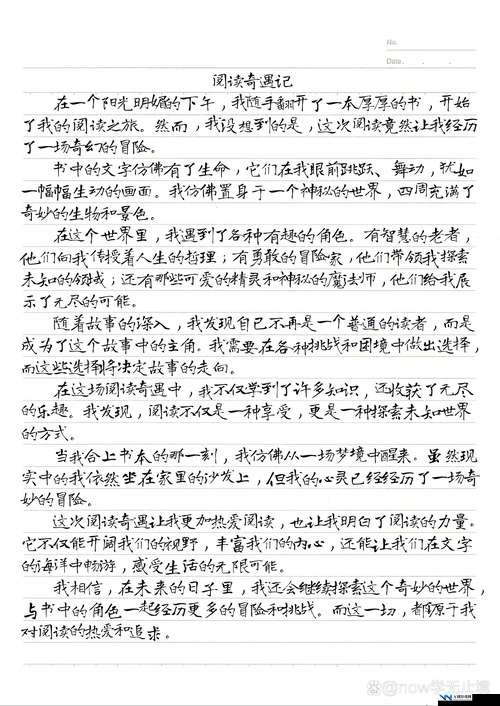 No.
Date. . .
阅读奇遇记
在一个阳光明媚的下午，我随手翻开了一本厚厚的书，开始
了我的阅读之旅。然而，我没想到的是，这次阅读竟然让我经历
了一场奇幻的冒险。
书中的文字仿佛有了生命，它们在我眼前跳跃、舞动，犹如
一幅幅生动的画面。我仿佛置身于一个神秘的世界，四周充满了
奇妙的生物和景色。
在这个世界里，我遇到了各种有趣的角色。有智慧的老者，
他们向我传授着人生的哲理；有勇敢的冒险家，他们带领我探索
未知的领域；还有那些可爱的精灵和神秘的魔法师，他们给我展
示了无尽的可能。
随着故事的深入，我发现自己不再是一个普通的读者，而是
成为了这个故事中的主角。我需要在各种挑战和困境中做出选择，
而这些选择将决定故事的走向。
在这场阅读奇遇中，我不仅学到了许多知识，还收获了无尽
的乐趣。我发现，阅读不仅是一种享受，更是一种探索未知世界
的方式。
当我合上书本的那一刻，我仿佛从一场梦境中醒来。虽然现
实中的我依然坐在家里的沙发上，但我的心灵已经经历了一场奇
妙的冒险。
这次阅读奇遇让我更加热爱阅读，也让我明白了阅读的力量。
它不仅能开阔我们的视野，丰富我们的内心，还能让我们在文字
的海洋中畅游，感受生活的无限可能。
我相信，在未来的日子里，我还会继续探索这个奇妙的世界，
与书中的角色一起经历更多的冒险和挑战。而这一切，都源于我
对阅读的热爱和追求。
@now学无止境